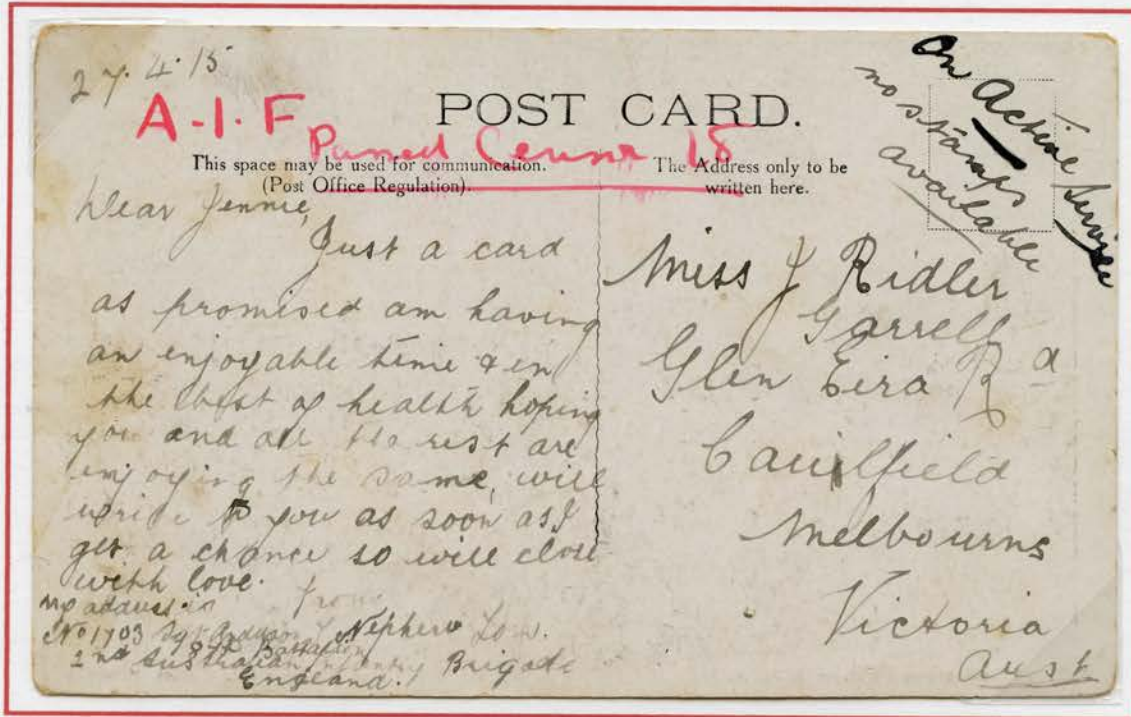 27.4.15
A.I.F
Passed Censor 15
POST CARD.
This space may be used for communication.
(Post Office Regulation).
The Address only to be
written here.
On Active Service
no stamps
available
Dear Jennie,
Just a card
as promised am having
an enjoyable time & in
the best of health hoping
you and all the rest are
enjoying the same, will
write to you as soon as I
get a chance so will close
with love.
from
Nephew
my address is
No 1703 Sgt
8th Battalion
2nd Australian Infantry Brigade
England.
Miss J Ridler
Glen Eira Rd
Caulfield
Melbourne
Victoria
Aust